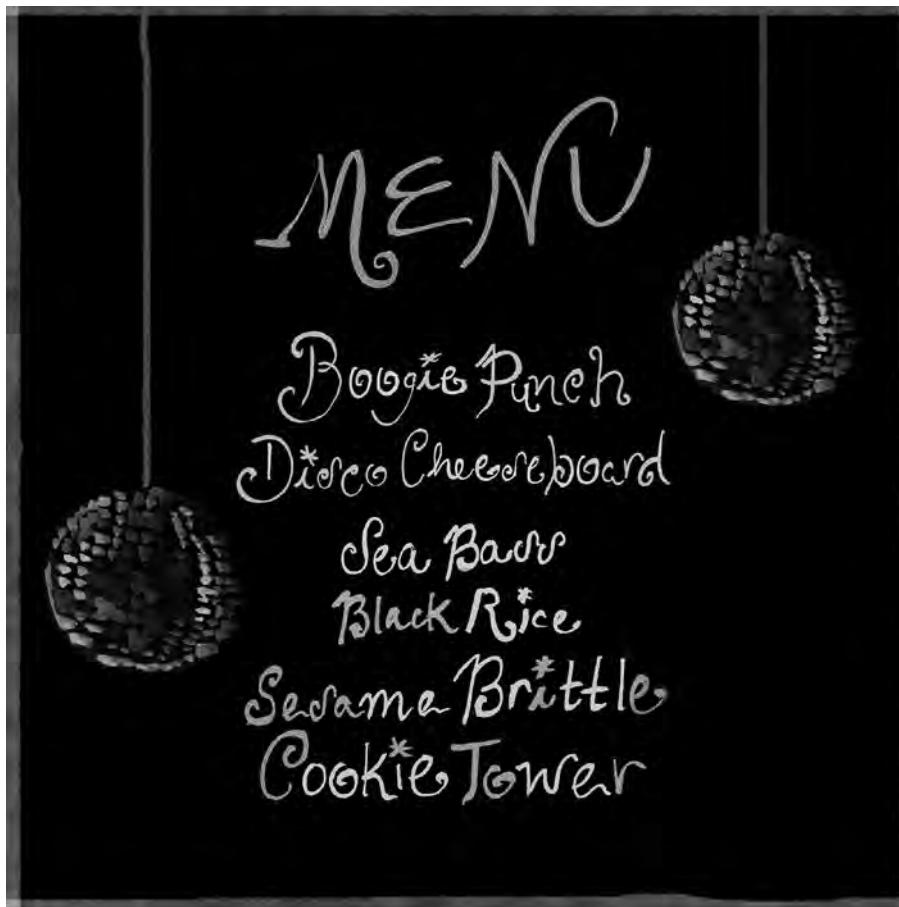 MENU
Boogie Punch
Disco Cheeseboard
Sea Bass
Black Rice
Sesame Brittle
Cookie Tower